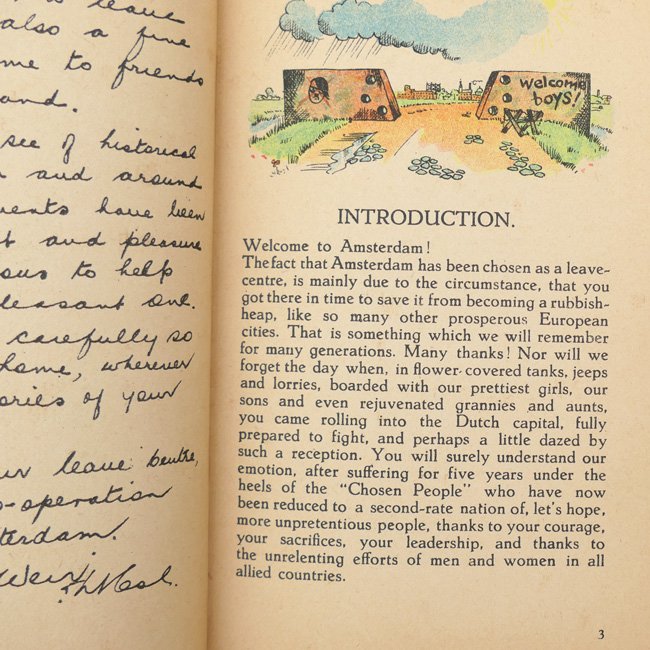 to leave
also a fine
me to friends
and.
see of historical
and around
ments have been
t and pleasure
ous to help
leasant one.
carefully so
home, wherever
ories of your
ur leave centre,
o-operation
terdam.
welcome
boys!
INTRODUCTION.
Welcome to Amsterdam!
The fact that Amsterdam has been chosen as a leave-
centre, is mainly due to the circumstance, that you
got there in time to save it from becoming a rubbish-
heap, like so many other prosperous European
cities. That is something which we will remember
for many generations. Many thanks! Nor will we
forget the day when, in flower-covered tanks, jeeps
and lorries, boarded with our prettiest girls, our
sons and even rejuvenated grannies and aunts,
you came rolling into the Dutch capital, fully
prepared to fight, and perhaps a little dazed by
such a reception. You will surely understand our
emotion, after suffering for five years under the
heels of the “Chosen People” who have now
been reduced to a second-rate nation of, let's hope,
more unpretentious people, thanks to your courage,
your sacrifices, your leadership, and thanks to
the unrelenting efforts of men and women in all
allied countries.
3